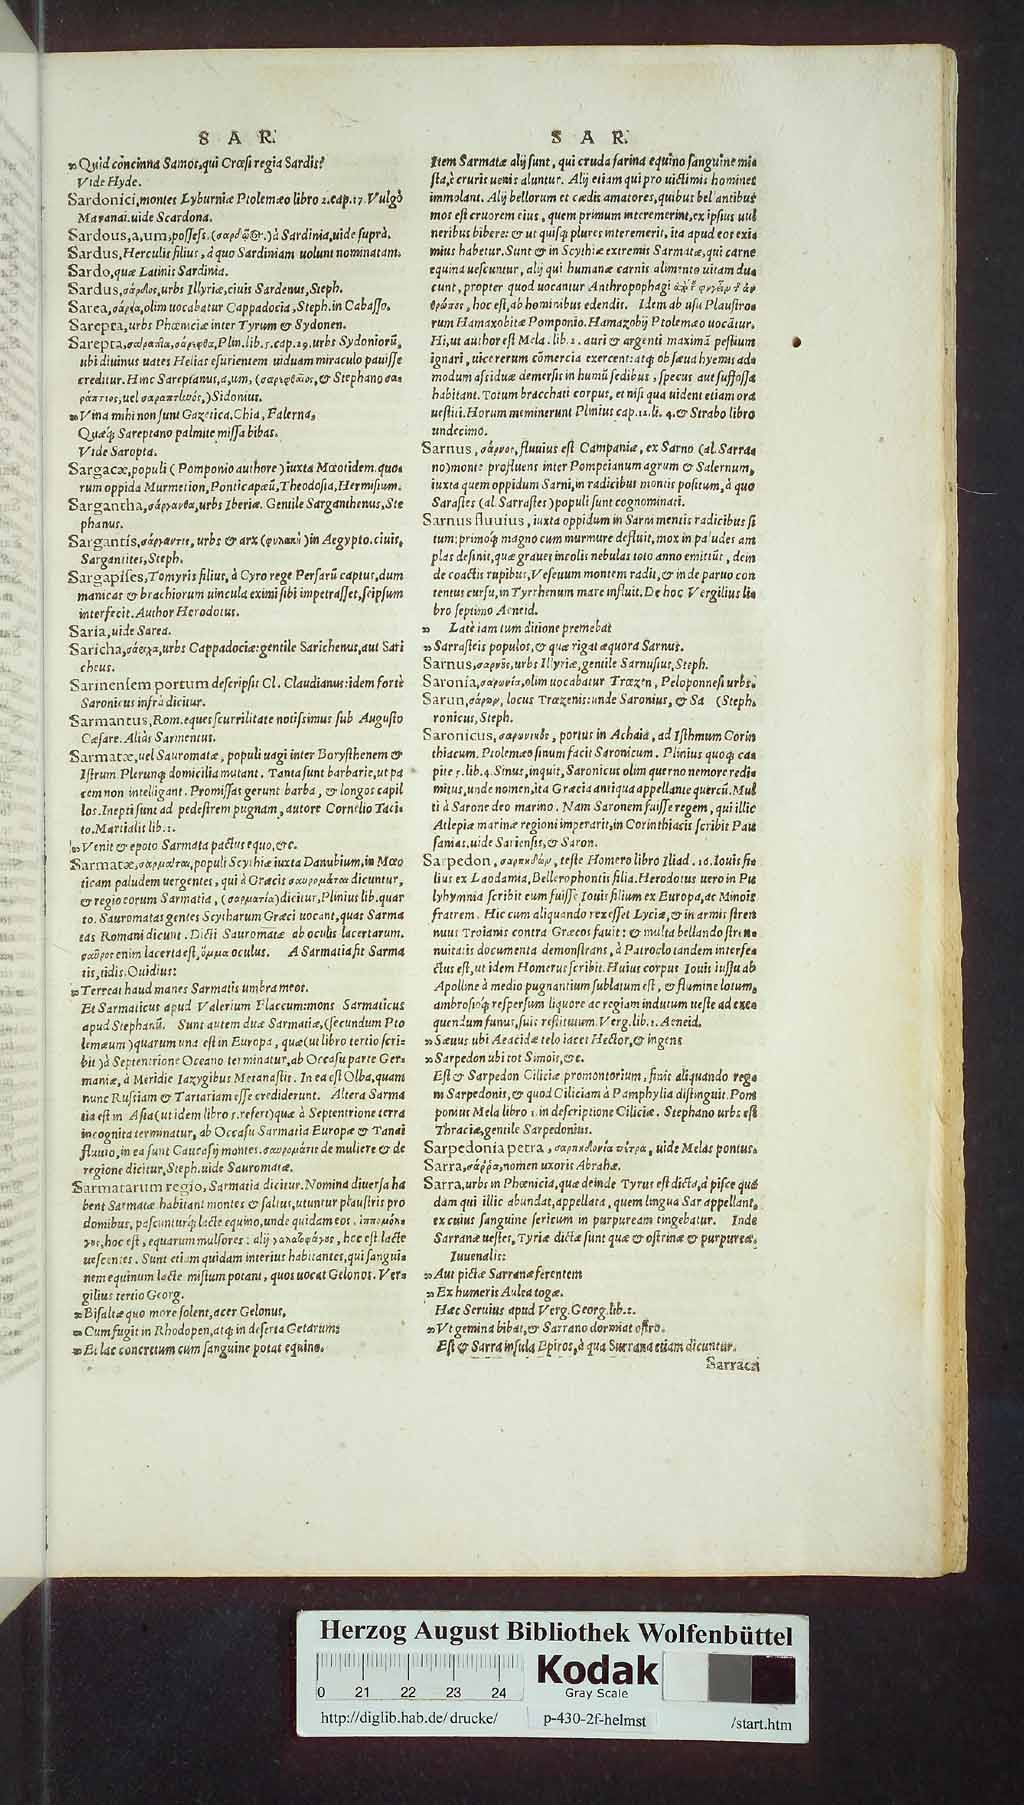 S A R.
Quid concinna Samos, qui Crœsi regia Sardis?
Vide Hyde.
Sardonici, montes Lyburniæ Ptolemæo libro 2. cap. 17. Vulgò
Mavanai. uide Scardona.
Sardous, a, um, possess. à Sardinia, uide suprà.
Sardus, Herculis filius, à quo Sardiniam uolunt nominatam.
Sardo, quæ Latinis Sardinia.
Sardus, σάρδος, urbs Illyriæ, ciuis Sardenus, Steph.
Sarea, σάρεα, olim uocabatur Cappadocia, Steph. in Cabasso.
Sarepta, urbs Phœniciæ inter Tyrum & Sydonem.
Sarepta, Plin. lib. 5. cap. 19. urbs Sydoniorū,
ubi diuinus uates Helias esurientem uiduam miraculo pauisse
creditur. Hinc Sareptanus, a, um, (σαρεφθαῖος, & Stephano σα-
ράπτιος, uel σαραπτίωός,) Sidonius.
Vina mihi non sunt Gazetica, Chia, Falerna,
Quæq; Sareptano palmite missa bibas.
Vide Saropta.
Sargacæ, populi (Pomponio authore) iuxta Mœotidem. quo-
rum oppida Murmetion, Ponticapæū, Theodosia, Hermisium.
Sargantha, σάργανθα, urbs Iberiæ. Gentile Sarganthenus, Ste
phanus.
Sargantis, σάργαντις, urbs & arx (φυλακὴ) in Aegypto. ciuis,
Sargantites, Steph.
Sargapises, Tomyris filius, à Cyro rege Persarū captus, dum
manicas & brachiorum uincula eximi sibi impetrasset, seipsum
interfecit. Author Herodotus.
Saria, uide Sarea.
Saricha, σάριχα, urbs Cappadociæ: gentile Sarichenus, aut Sari
cheus.
Sarinensem portum descripsit Cl. Claudianus: idem fortè
Saronicus infrà dicitur.
Sarmantus, Rom. eques scurrilitate notissimus sub Augusto
Cæsare. Aliàs Sarmentus.
Sarmatæ, uel Sauromatæ, populi uagi inter Borysthenem &
Istrum. Plerunq; domicilia mutant. Tanta sunt barbarie, ut pa
cem non intelligant. Promissas gerunt barba, & longos capil
los. Inepti sunt ad pedestrem pugnam, autore Cornelio Taci-
to. Martialis lib. 1.
Venit & epoto Sarmata pactus equo, &c.
Sarmatæ, σαρμάται, populi Scythiæ iuxta Danubium, in Mœo
ticam paludem uergentes, qui à Græcis σαυρομάται dicuntur,
& regio eorum Sarmatia, (σαρματία) dicitur, Plinius lib. quar
to. Sauromatas gentes Scytharum Græci uocant, quas Sarma
tas Romani dicunt. Dicti Sauromatæ ab oculis lacertarum.
σαῦρος enim lacerta est, ὄμμα oculus. A Sarmatia fit Sarma
tis, tidis. Ouidius:
Terreat haud manes Sarmatis umbra meos.
Et Sarmaticus apud Valerium Flaccum: mons Sarmaticus
apud Stephanū. Sunt autem duæ Sarmatiæ, (secundum Pto
lemæum) quarum una est in Europa, quæ (ut libro tertio scri-
bit) à Septentrione Oceano terminatur, ab Occasu parte Ger-
maniæ, à Meridie Iazygibus Metanastis. In ea est Olba, quam
nunc Russiam & Tartariam esse crediderunt. Altera Sarma
tia est in Asia (ut idem libro 5. refert) quæ à Septentrione terra
incognita terminatur, ab Occasu Sarmatia Europæ & Tanai
fluuio, in ea sunt Caucasij montes. σαυρομάτις de muliere & de
regione dicitur, Steph. uide Sauromatæ.
Sarmatarum regio, Sarmatia dicitur. Nomina diuersa ha
bent Sarmatæ habitant montes & saltus, utuntur plaustris pro
domibus, pascunturq; lacte equino, unde quidam eos. ἱππομόλ-
γες, hoc est, equarum mulsores: alij γαλακτοφάγος, hoc est lacte
uescentes. Sunt etiam quidam interius habitantes, qui sangui-
nem equinum lacte mistum potant, quos uocat Gelonos. Ver-
gilius tertio Georg.
Bisaltæ quo more solent, acer Gelonus,
Cum fugit in Rhodopen, atq; in deserta Getarum:
Et lac concretum cum sanguine potat equino.
S A R.
Item Sarmatæ alij sunt, qui cruda farina equino sanguine mi-
sta, è cruris uenis aluntur. Alij etiam qui pro uictimis homines
immolant. Alij bellorum et cædis amatores, quibus bel antibus
mos est cruorem eius, quem primum interemerint, ex ipsius uul
neribus bibere: & ut quisq; plures interemerit, ita apud eos exi-
mius habetur. Sunt & in Scythiæ extremis Sarmatæ, qui carne
equina uescuntur, alij qui humanæ carnis alimento uitam du-
cunt, propter quod uocantur Anthropophagi
hoc est, ab hominibus edendis. Idem ab usu Plaustro-
rum Hamaxobitæ Pomponio. Hamazobij Ptolemæo uocātur.
Hi, ut author est Mela. lib. 2. auri & argenti maximā pestium
ignari, uice rerum cōmercia exercent: atq; ob sæua hyemis ad-
modum assiduæ demersis in humū sedibus, specus aut suffossa
habitant. Totum bracchati corpus, et nisi qua uident etiam ora
uestiti. Horum meminerunt Plinius cap. 12. li. 4. & Strabo libro
undecimo.
Sarnus, σάρνος, fluuius est Campaniæ, ex Sarno (al. Sarra-
no) monte profluens inter Pompeianum agrum & Salernum,
iuxta quem oppidum Sarni, in radicibus montis positum, à quo
Sarastes (al. Sarrastes) populi sunt cognominati.
Sarnus fluuius, iuxta oppidum in Sarni mentis radicibus si
tum: primoq; magno cum murmure defluit, mox in paludes am
plas desinit, quæ graues incolis nebulas toto anno emittūt, dein
de coactis rupibus, Veseuum montem radit, & inde paruo con
tentus cursu, in Tyrrhenum mare influit. De hoc Vergilius li-
bro septimo Aeneid.
Latè iam tum ditione premebat
Sarrasteis populos, & quæ rigat æquora Sarnus.
Sarnus, σαρνοῦς, urbs Illyriæ, gentile Sarnusius, Steph.
Saronia, σαρωνία, olim uocabatur Trœzen, Peloponnesi urbs.
Sarun, σάρων, locus Trœzenis: unde Saronius, & Sa (Steph.
ronicus, Steph.
Saronicus, σαρωνικὸς, portus in Achaia, ad Isthmum Corin
thiacum. Ptolemæo sinum facit Saronicum. Plinius quoq; ca-
pite 5. lib. 4. Sinus, inquit, Saronicus olim querno nemore redi-
mitus, unde nomen, ita Græcia antiqua appellante quercū. Mul
ti à Sarone deo marino. Nam Saronem fuisse regem, qui illic
Atlepiæ marinæ regioni imperarit, in Corinthiacis scribit Pau
sanias. uide Sariensis, & Saron.
Sarpedon, σαρπηδὼν, teste Homero libro Iliad. 16. Iouis fi-
lius ex Laodamia, Bellerophontis filia. Herodotus uero in Po-
lyhymnia scribit eum fuisse Iouis filium ex Europa, ac Minois
fratrem. Hic cum aliquando rex esset Lyciæ, & in armis stren
nuus Troianis contra Græcos fauit: & multa bellando stre-
nuitatis documenta demonstrans, à Patroclo tandem interfe-
ctus est, ut idem Homerus scribit. Huius corpus Iouis iussu ab
Apolline à medio pugnantium sublatum est, & flumine lotum,
ambrosioq; respersum liquore ac regiam indutum ueste ad exe-
quendum funus, suis restitutum. Verg. lib. 1. Aeneid.
Sæuus ubi Aeacidæ telo iacet Hector, & ingens
Sarpedon ubi tot Simois, &c.
Est & Sarpedon Ciliciæ promontorium, finis aliquando reg-
ni Sarpedonis, & quod Ciliciam à Pamphylia distinguit. Pom
ponius Mela libro 1. in descriptione Ciliciæ. Stephano urbs est
Thraciæ, gentile Sarpedonius.
Sarpedonia petra, σαρπηδονία πέτρα, uide Melas pontus.
Sarra, σάῤῥα, nomen uxoris Abrahæ.
Sarra, urbs in Phœnicia, quæ deinde Tyrus est dicta, à pisce quo
dam qui illic abundat, appellata, quem lingua Sar appellant,
ex cuius sanguine sericum in purpuream tingebatur. Inde
Sarranæ uestes, Tyriæ dictæ sunt quæ & ostrinæ & purpureæ.
Iuuenalis:
Aut pictæ Sarrana ferentem
Ex humeris Aulea togæ.
Hæc Seruius apud Verg. Georg. lib. 2.
Vt gemina bibat, & Sarrano dormiat ostro.
Est & Sarra insula Epiros, à qua Sarrana etiam dicuntur.
Sarraca
Herzog August Bibliothek Wolfenbüttel
Kodak
Gray Scale
0 21 22 23 24
http://diglib.hab.de/drucke/ p-430-2f-helmst /start.htm